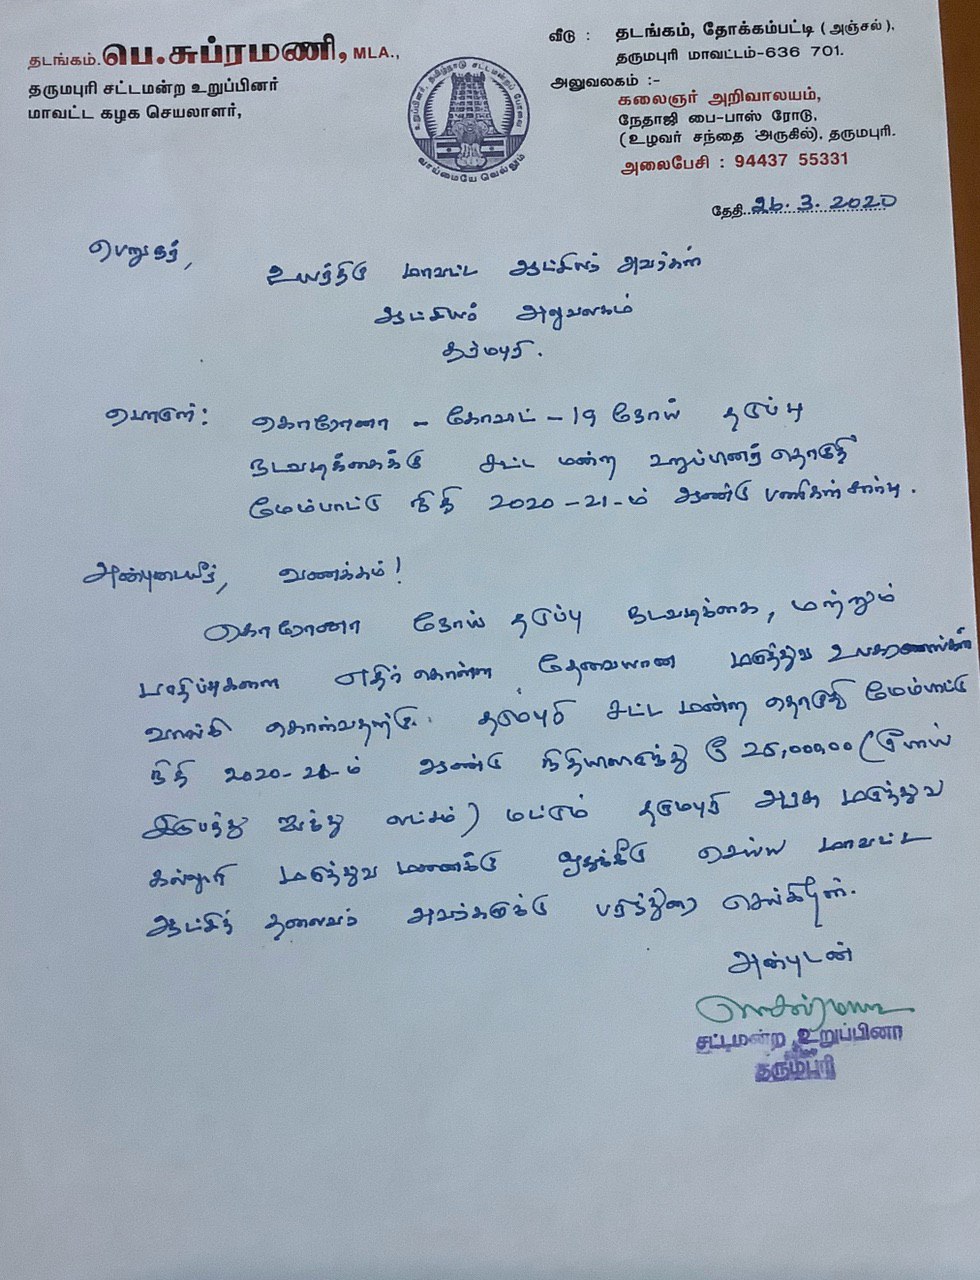 தடங்கம். பெ.சுப்ரமணி, MLA.,
தருமபுரி சட்டமன்ற உறுப்பினர்
மாவட்ட கழக செயலாளர்,
உறுப்பினர், தமிழ்நாடு சட்டமன்றப் பேரவை
வாய்மையே வெல்லும்
வீடு : தடங்கம், தோக்கம்பட்டி (அஞ்சல்),
தருமபுரி மாவட்டம்-636 701.
அலுவலகம் :-
கலைஞர் அறிவாலயம்,
நேதாஜி பை-பாஸ் ரோடு,
(உழவர் சந்தை அருகில்), தருமபுரி.
அலைபேசி : 94437 55331
தேதி..26.3.2020
பெறுநர்,
உயர்திரு மாவட்ட ஆட்சியர் அவர்கள்
ஆட்சியர் அலுவலகம்
தர்மபுரி.
பொருள்: கொரோனா - கோவிட் - 19 நோய் தடுப்பு
நடவடிக்கைக்கு சட்ட மன்ற உறுப்பினர் தொகுதி
மேம்பாட்டு நிதி 2020-21-ம் ஆண்டு பணிகள் சார்பு.
அன்புடையீர், வணக்கம்!
கொரோனா நோய் தடுப்பு நடவடிக்கை, மற்றும்
பாதிப்புகளை எதிர் கொள்ள தேவையான மருத்துவ உபகரணங்கள்
வாங்கி கொள்வதற்கு. தருமபுரி சட்ட மன்ற தொகுதி மேம்பாட்டு
நிதி 2020-21-ம் ஆண்டு நிதியிலிருந்து ரூ 25,00000 (ரூபாய்
இருபத்து ஐந்து லட்சம்) மட்டும் தருமபுரி அரசு மருத்துவ
கல்லூரி மருத்துவ மனைக்கு ஒதுக்கீடு செய்ய மாவட்ட
ஆட்சித் தலைவர் அவர்களுக்கு பரிந்துரை செய்கிறேன்.
அன்புடன்
சட்டமன்ற உறுப்பினர்
தருமபுரி